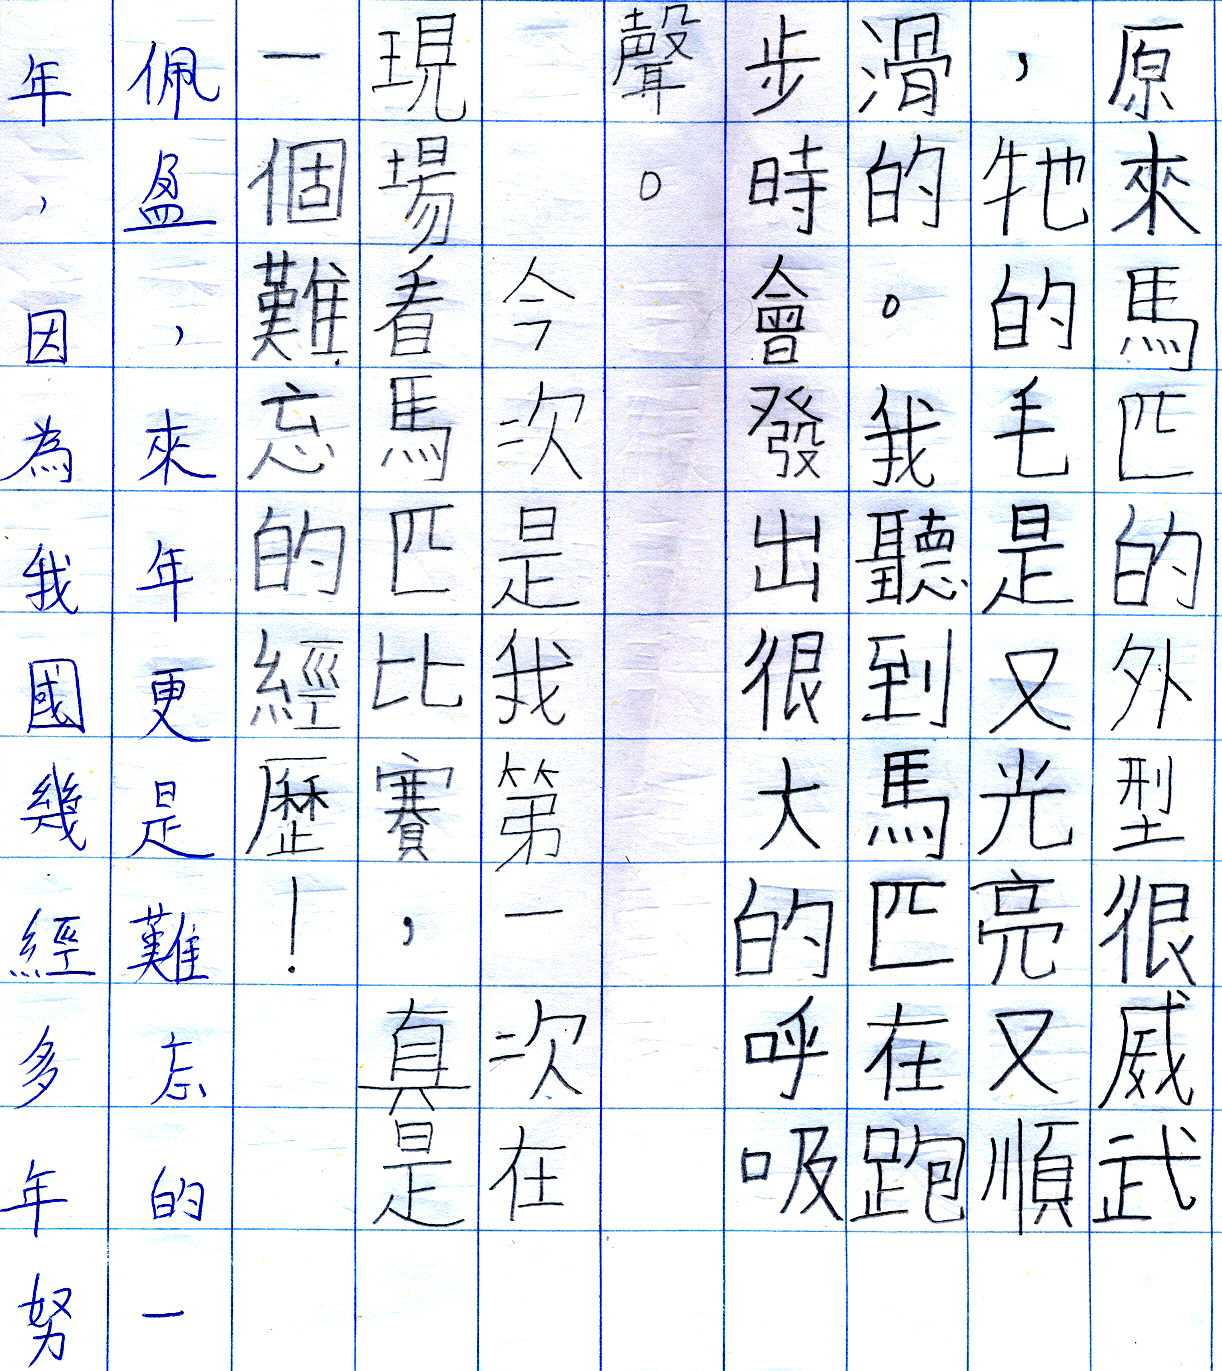 原來馬匹的外型很威武
，牠的毛是又光亮又順
滑的。我聽到馬匹在跑
步時會發出很大的呼吸
聲。
今次是我第一次在
現場看馬匹比賽，真是
一個難忘的經歷！
佩盈，來年更是難忘的一
年，因為我國幾經多年努